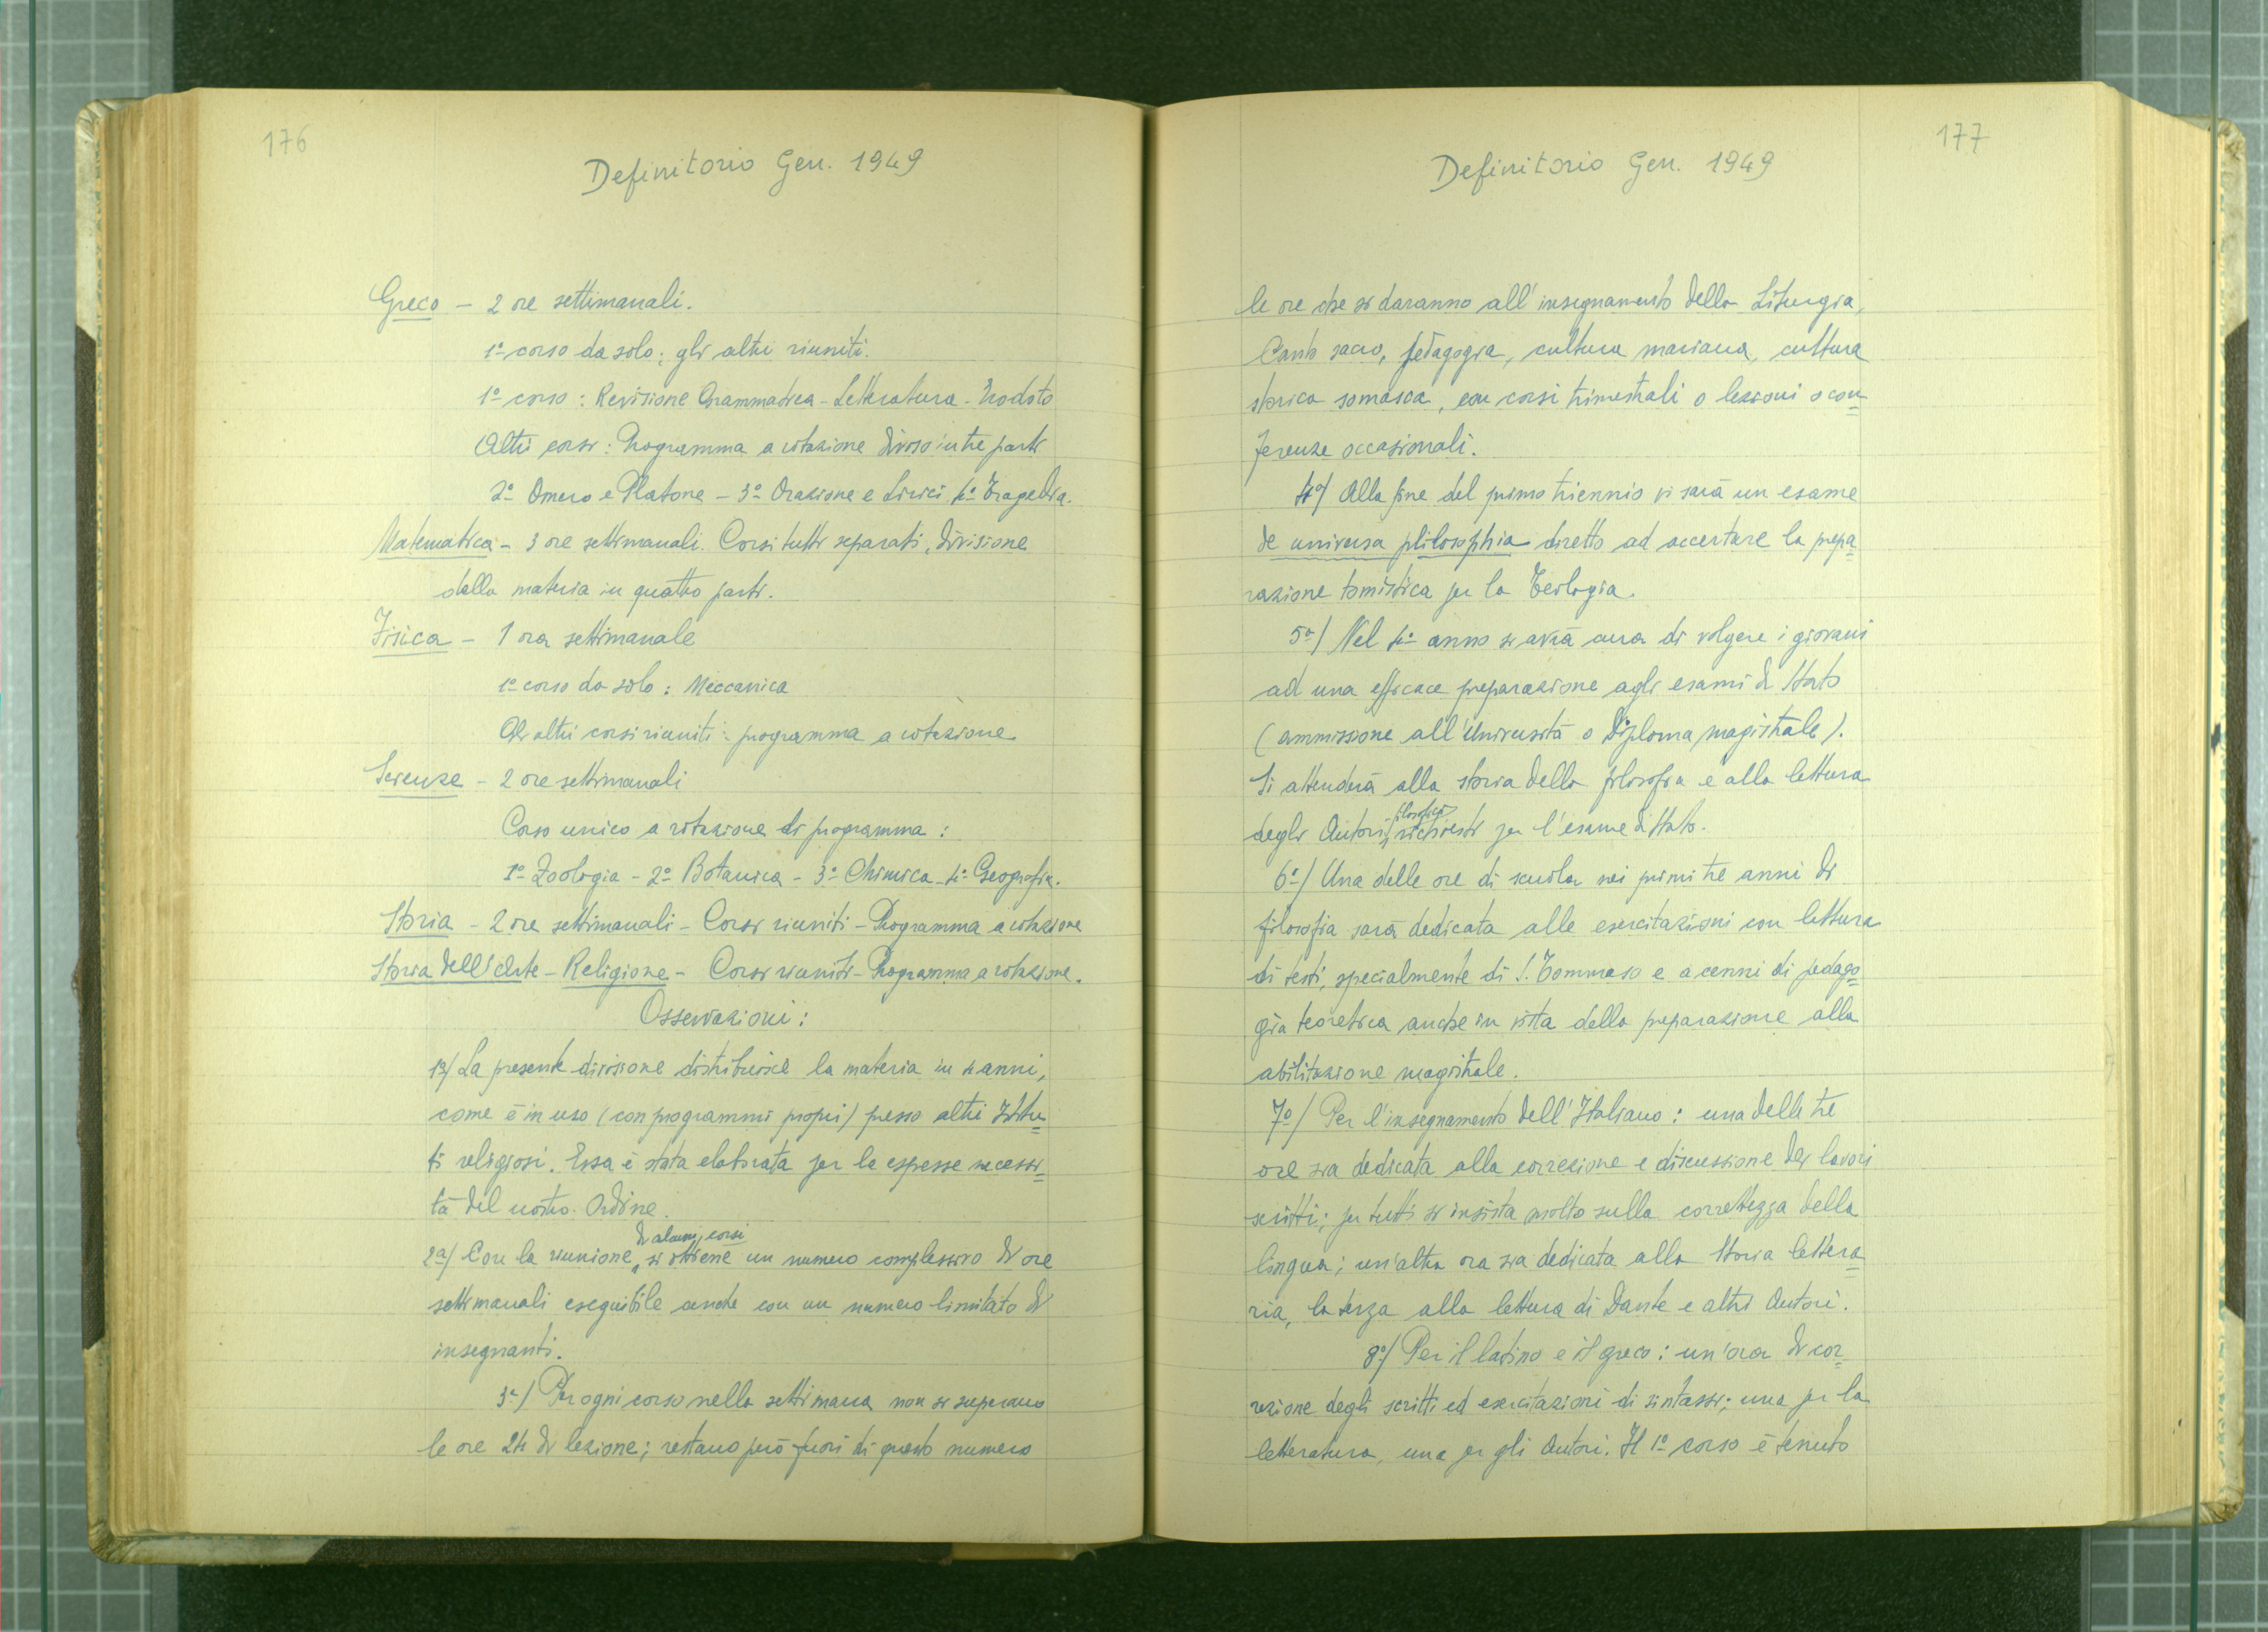 176
Definitorio Gen. 1949
Greco - 2 ore settimanali.
1º corso da solo; gli altri riuniti.
1º corso: Revisione Grammatica - Letteratura - Erodoto
Altri corsi: Programma a rotazione diviso in tre parti
2º Omero e Platone - 3º Orazione e Lirici 4º Tragedia.
Matematica - 3 ore settimanali. Corsi tutti separati, divisione
della materia in quattro parti.
Fisica - 1 ora settimanale
1º corso da solo: Meccanica
Gli altri corsi riuniti: programma a rotazione
Scienze - 2 ore settimanali
Corso unico a rotazione di programma:
1º Zoologia - 2º Botanica - 3º Chimica - 4º Geografia.
Storia - 2 ore settimanali - Corsi riuniti - Programma a rotazione
Storia dell'Arte - Religione - Corsi riuniti - Programma a rotazione.
Osservazioni:
1º/ La presente divisione distribuisce la materia in 4 anni,
come è in uso (con programmi propri) presso altri Istitu=
ti religiosi. Essa è stata elaborata per le espresse necessi=
tà del nostro Ordine.
di alcuni corsi
2º/ Con la riunione, si ottiene un numero complessivo di ore
settimanali eseguibile anche con un numero limitato di
insegnanti.
3º/ Per ogni corso nella settimana non si superano
le ore 24 di lezione; restano però fuori di questo numero
177
Definitorio Gen. 1949
le ore che si daranno all'insegnamento della Liturgia,
Canto sacro, pedagogia, cultura mariana, cultura
storica somasca, con corsi trimestrali o lezioni o con=
ferenze occasionali.
4º/ Alla fine del primo triennio vi sarà un esame
de universa philosophia diretto ad accertare la prepa=
razione tomistica per la Teologia.
5º/ Nel 4º anno si avrà cura di volgere i giovani
ad una efficace preparazione agli esami di Stato
(ammissione all'Università o Diploma magistrale).
Si attenderà alla storia della filosofia e alla lettura
filosofici
degli Autori, richiesti per l'esame di Stato.
6º/ Una delle ore di scuola nei primi tre anni di
filosofia sarà dedicata alle esercitazioni con lettura
di testi, specialmente di S. Tommaso e a cenni di pedago=
gia teoretica anche in vista della preparazione alla
abilitazione magistrale.
7º/ Per l'insegnamento dell'Italiano: una delle tre
ore sia dedicata alla correzione e discussione dei lavori
scritti; per tutti si insista molto sulla correttezza della
lingua; un'altra ora sia dedicata alla Storia lettera=
ria, la terza alla lettura di Dante e altri Autori.
8º/ Per il latino e il greco: un'ora di cor=
rezione degli scritti ed esercitazioni di sintassi; una per la
letteratura, una per gli Autori. Il 1º corso è tenuto